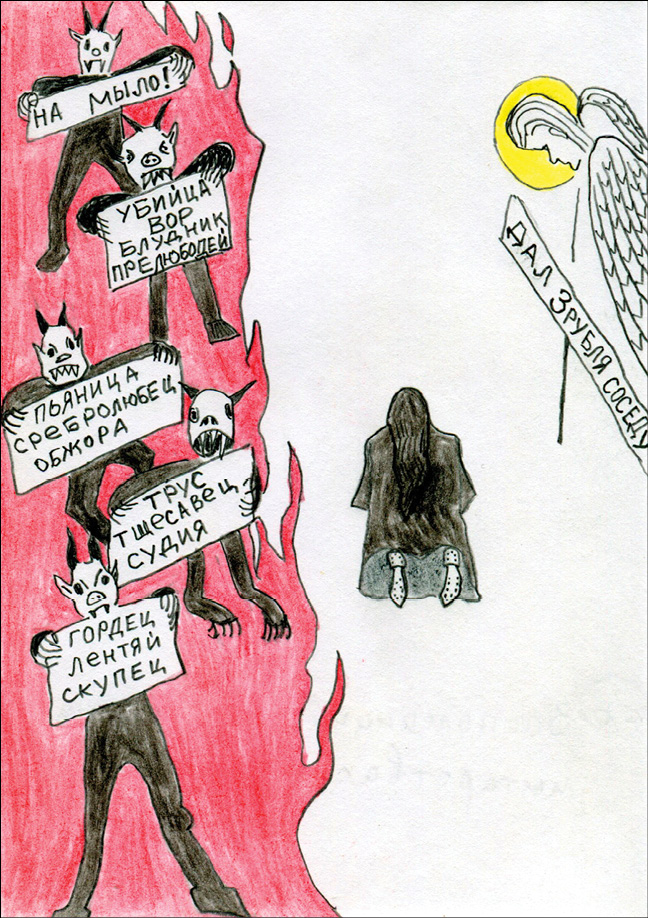 НА МЫЛО!
УБИЙЦА
ВОР
БЛУДНИК
ПРЕЛЮБОДЕЙ
ПЬЯНИЦА
СРЕБРОЛЮБЕЦ
ОБЖОРА
ТРУС
ТЩЕСАВЕЦ
СУДИЯ
ГОРДЕЦ
ЛЕНТЯЙ
СКУПЕЦ
ДАЛ 3 РУБЛЯ СОСЕДУ